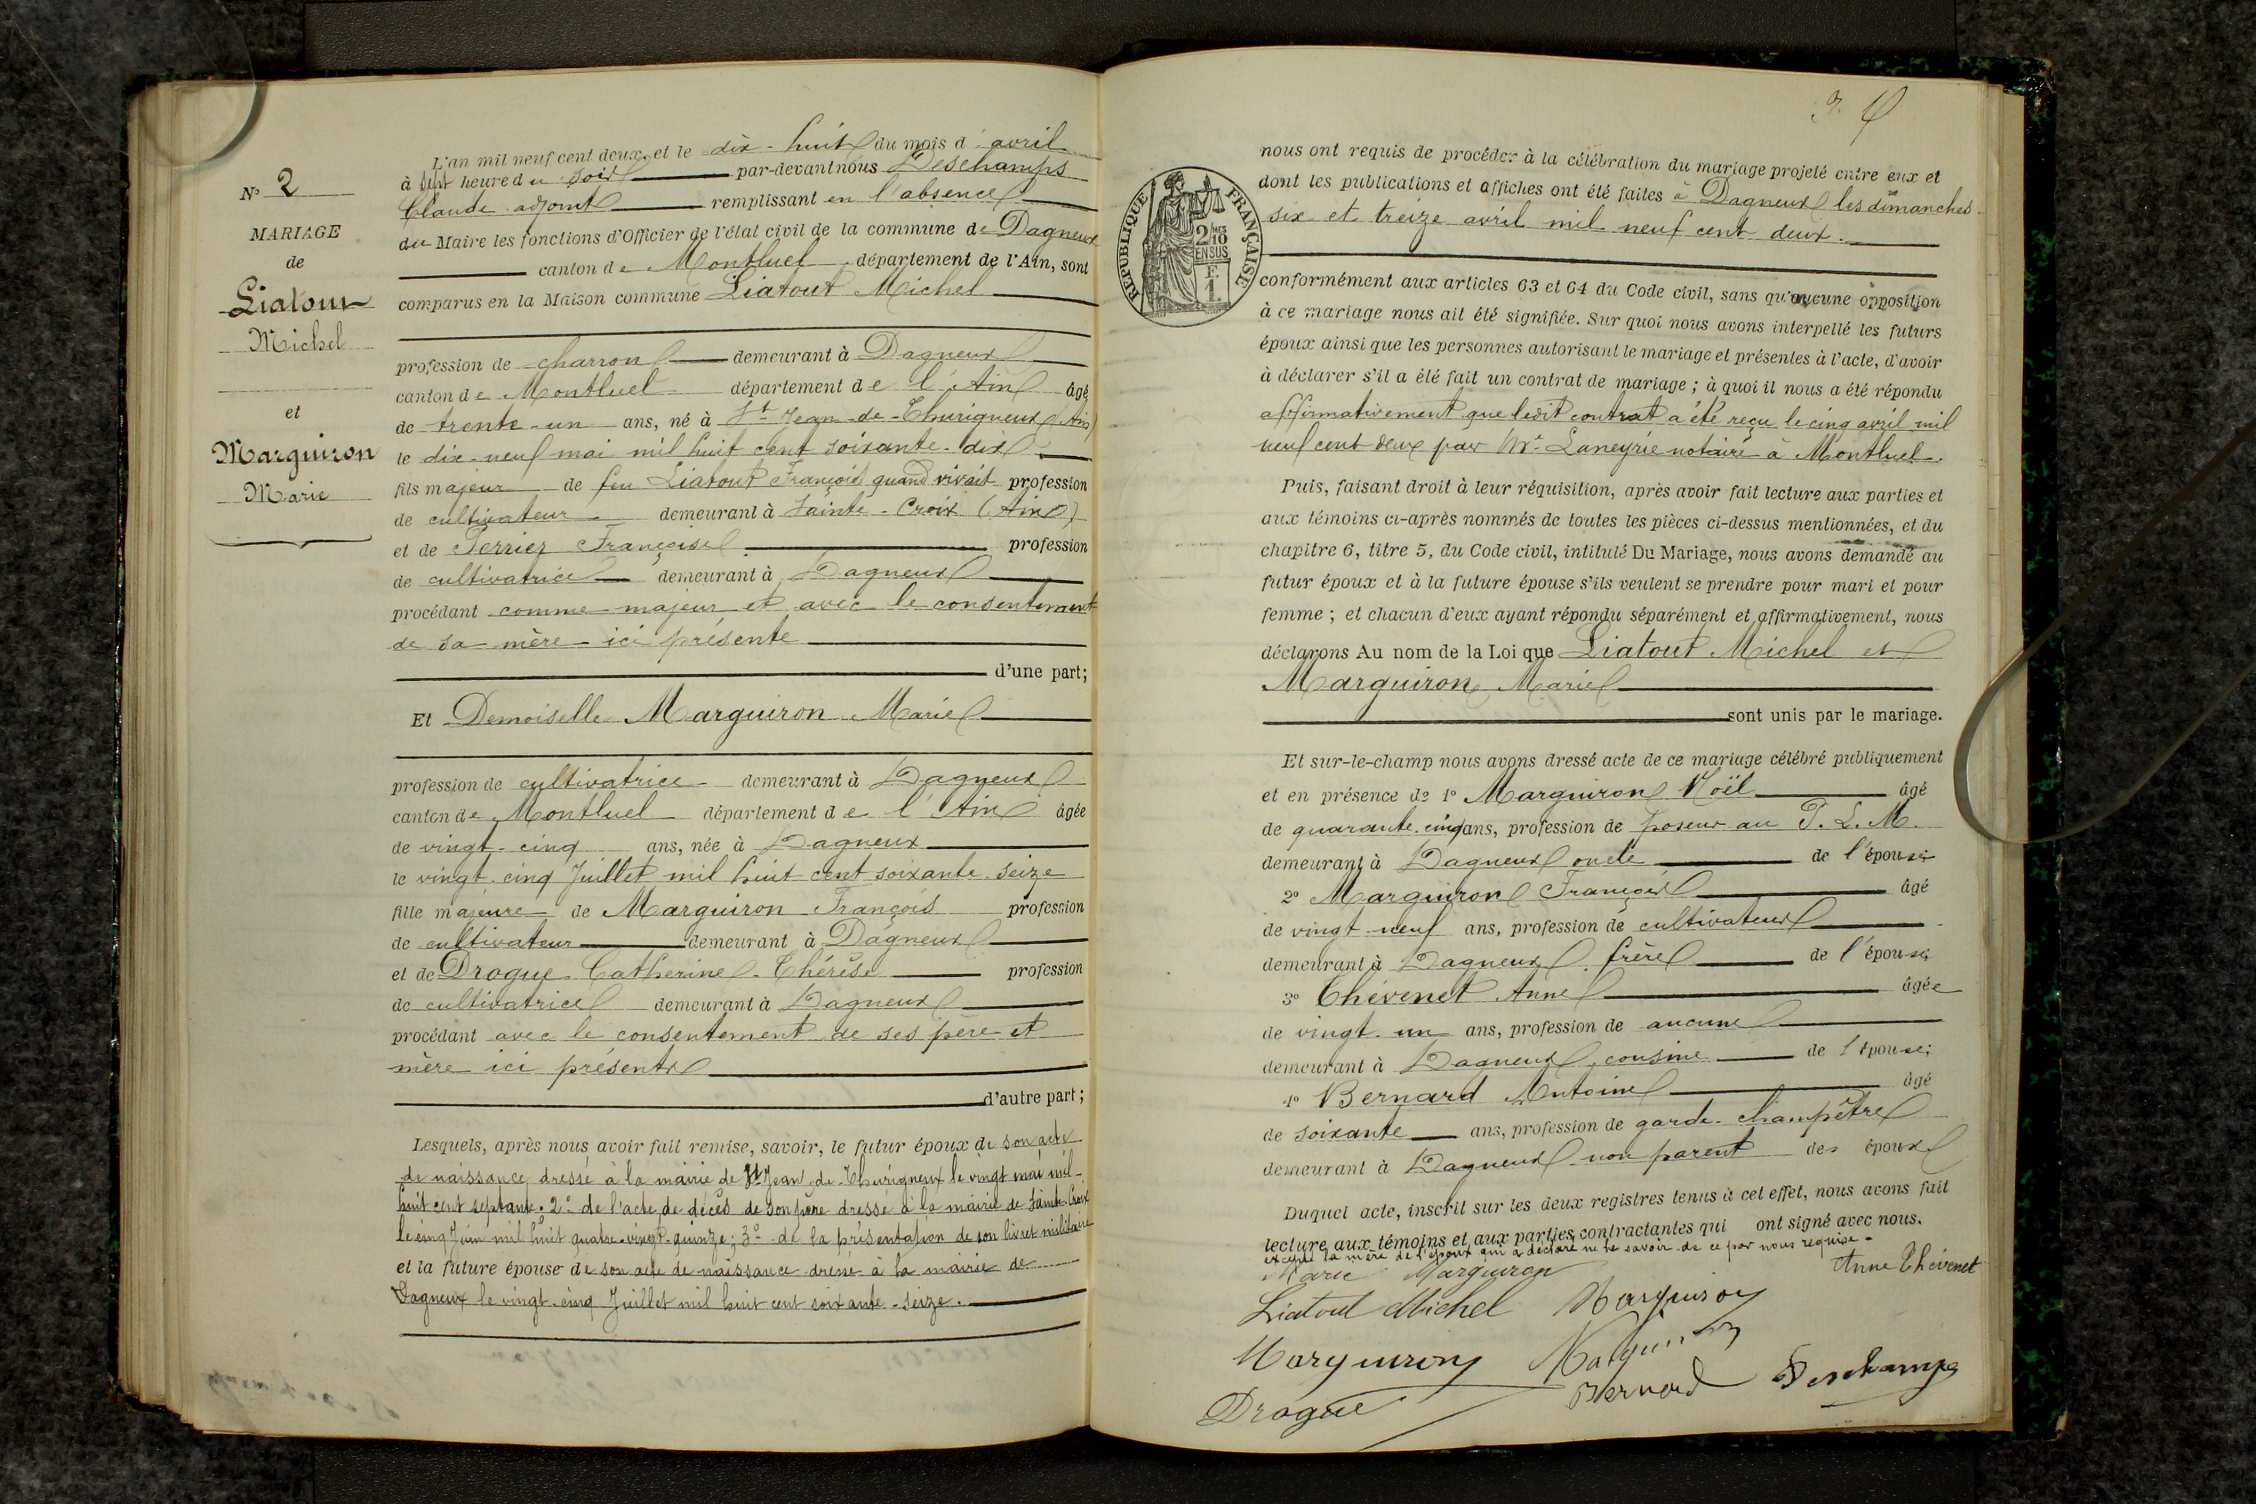 N° 2
MARIAGE
de
Liatout
Michel
et
Marguiron
Marie
L'an mil neuf cent deux et le dix-huit du mois d'avril
à sept heure du soir par-devant nous Deschamps
Claude adjoint remplissant en l'absence
du Maire les fonctions d'Officier de l'état civil de la commune de Dagneux
canton de Montluel département de l'Ain, sont
comparus en la Maison commune Liatout Michel
profession de charron demeurant à Dagneux
canton de Montluel département de l'Ain âgé
de trente-un ans, né à St Jean-de-Thurigneux (Ain)
le dix-neuf mai mil huit cent soixante-dix
fils majeur de feu Liatout François quand vivait profession
de cultivateur demeurant à Sainte-Croix (Ain)
et de Ferrier Françoise profession
de cultivatrice demeurant à Dagneux
procédant comme majeur et avec le consentement
de sa mère ici présente
d'une part;
Et Demoiselle Marguiron Marie
profession de cultivatrice demeurant à Dagneux
canton de Montluel département de l'Ain âgée
de vingt-cinq ans, née à Dagneux
le vingt-cinq Juillet mil huit cent soixante-seize
fille majeure de Marguiron François profession
de cultivateur demeurant à Dagneux
et de Drogue Catherine Thérèse profession
de cultivatrice demeurant à Dagneux
procédant avec le consentement de ses père et
mère ici présents
d'autre part;
Lesquels, après nous avoir fait remise, savoir, le futur époux de son acte
de naissance dressé à la mairie de St Jean-de-Thurigneux le vingt mai mil-
huit cent septante. 2° de l'acte de décès de son père dressé à la mairie de Sainte-Croix
le cinq Juin mil huit quatre-vingt-quinze; 3° de la présentation de son livret militaire
et la future épouse de son acte de naissance dressé à la mairie de
Dagneux le vingt-cinq Juillet mil huit cent soixante-seize.
RÉPUBLIQUE FRANÇAISE
2/10
EN SUS
nous ont requis de procéder à la célébration du mariage projeté entre eux et
dont les publications et affiches ont été faites à Dagneux les dimanches
six et treize avril mil neuf cent deux.
conformément aux articles 63 et 64 du Code civil, sans qu'aucune opposition
à ce mariage nous ait été signifiée. Sur quoi nous avons interpellé les futurs
époux ainsi que les personnes autorisant le mariage et présentes à l'acte, d'avoir
à déclarer s'il a été fait un contrat de mariage; à quoi il nous a été répondu
affirmativement que ledit contrat a été reçu le cinq avril mil
neuf cent deux par Me Laneyrie notaire à Montluel.
Puis, faisant droit à leur réquisition, après avoir fait lecture aux parties et
aux témoins ci-après nommés de toutes les pièces ci-dessus mentionnées, et du
chapitre 6, titre 5, du Code civil, intitulé Du Mariage, nous avons demandé au
futur époux et à la future épouse s'ils veulent se prendre pour mari et pour
femme; et chacun d'eux ayant répondu séparément et affirmativement, nous
déclarons Au nom de la Loi que Liatout Michel et
Marguiron Marie
sont unis par le mariage.
Et sur-le-champ nous avons dressé acte de ce mariage célébré publiquement
et en présence de 1° Marguiron Noël âgé
de quarante-cinq ans, profession de poseur au P.L.M.
demeurant à Dagneux oncle de l'épouse;
2° Marguiron François âgé
de vingt-neuf ans, profession de cultivateur
demeurant à Dagneux, frère de l'épouse;
3° Thévenet Anne âgée
de vingt-un ans, profession de aucune
demeurant à Dagneux, cousine de l'épouse;
4° Bernard Antoine âgé
de soixante ans, profession de garde-champêtre
demeurant à Dagneux non parent des époux
Duquel acte, inscrit sur les deux registres tenus à cet effet, nous avons fait
lecture aux témoins et aux parties contractantes qui ont signé avec nous.
excepté la mère de l'époux qui a déclaré ne le savoir de ce par nous requise.
Marie Marguiron Anne Thévenet
Liatout Michel Marguiron
Marguiron Marguiron
Drogue Bernard Deschamps